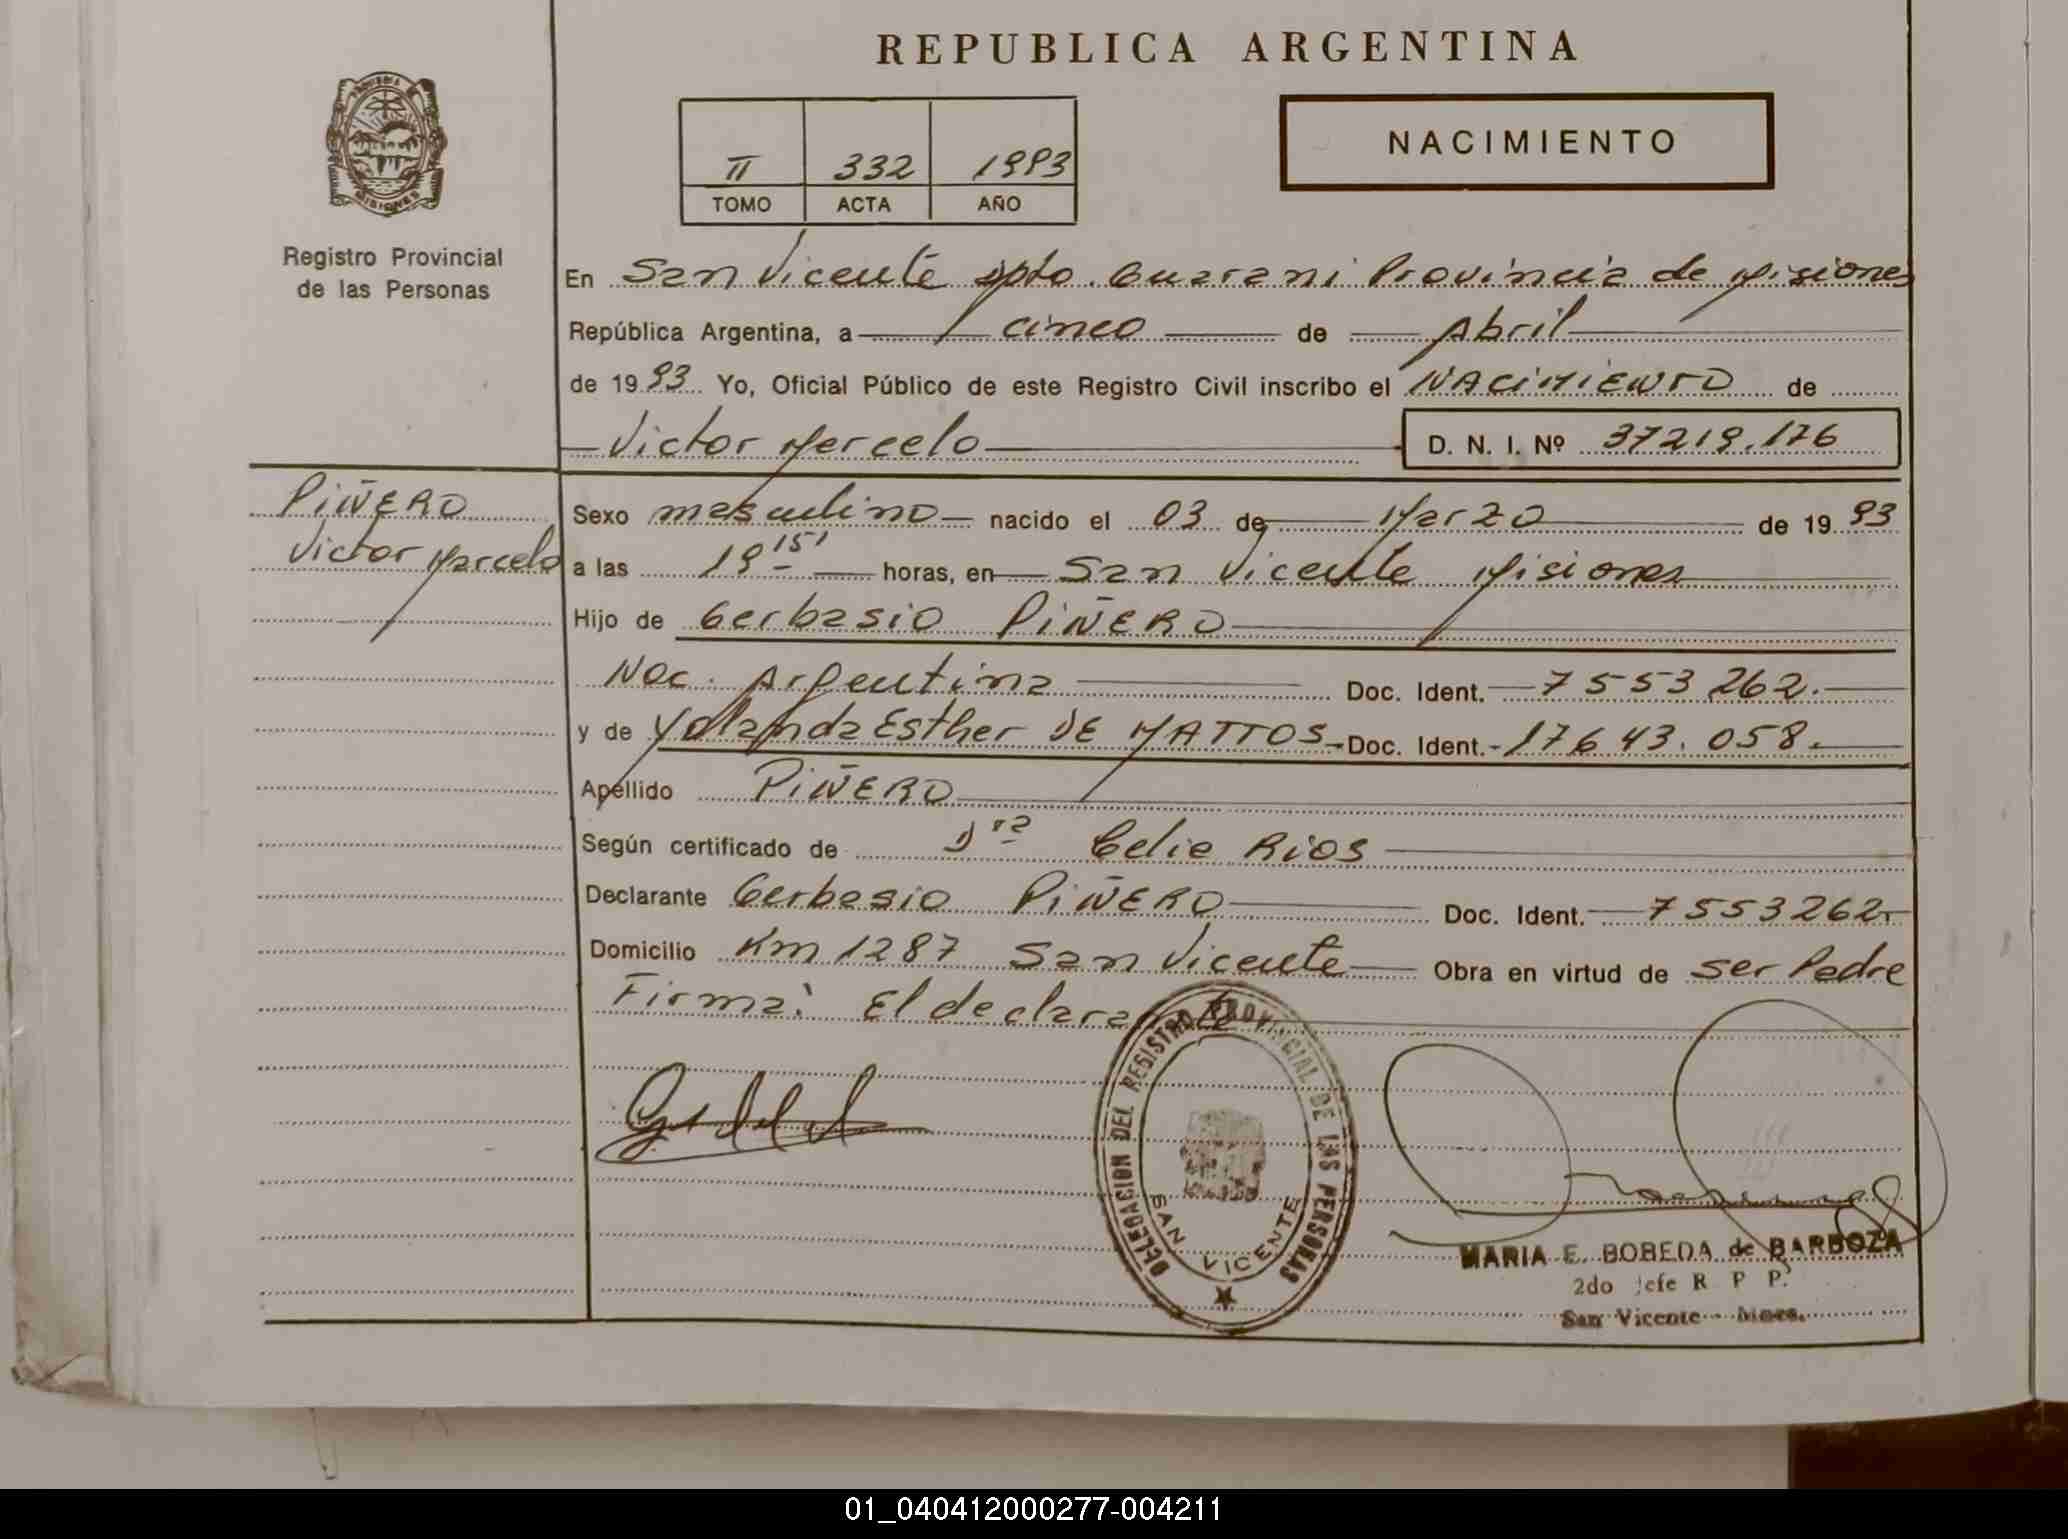 REPUBLICA ARGENTINA
NACIMIENTO
II 332 1993
TOMO ACTA AÑO
Registro Provincial
de las Personas
En San Vicente Dpto. Guarani Provincia de Misiones
República Argentina, a cinco de Abril
de 1993 Yo, Oficial Público de este Registro Civil inscribo el NACIMIENTO de
Victor Marcelo D. N. I. Nº 37219.176
PIÑERO
Victor Marcelo
Sexo masculino nacido el 03 de Marzo de 1993
a las 19 15' horas, en San Vicente Misiones
Hijo de Gerbasio PIÑERO
Nac. Argentina Doc. Ident. 7553262.
y de Yolanda Esther DE MATTOS Doc. Ident. 17643.058.
Apellido PIÑERO
Según certificado de Dra Celia Rios
Declarante Gerbasio PIÑERO Doc. Ident. 7553262
Domicilio Km 1287 San Vicente Obra en virtud de ser Padre
Firma: El declarante
DELEGACION DEL REGISTRO PROVINCIAL DE LAS PERSONAS
SAN VICENTE
MARIA E. BOBEDA de BARBOZA
2do Jefe R P P.
San Vicente - Mnes.
01_040412000277-004211